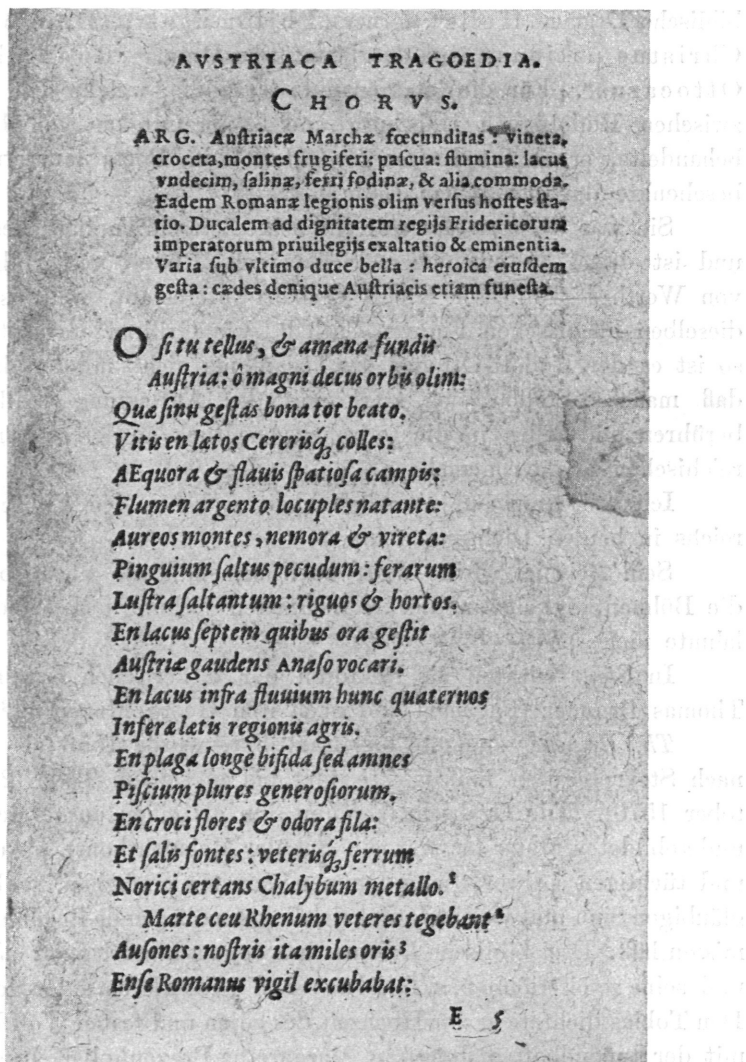 AVSTRIACA TRAGOEDIA.
CHORVS.
ARG. Auſtriacæ Marchæ fœcunditas: vineta,
croceta, montes frugiferi: paſcua: flumina: lacus
vndecim, ſalinæ, ferri fodinæ, & alia commoda.
Eadem Romanæ legionis olim verſus hoſtes ſta-
tio. Ducalem ad dignitatem regijs Fridericorum
imperatorum priuilegijs exaltatio & eminentia.
Varia ſub vltimo duce bella: heroica eiuſdem
geſta: cædes denique Auſtriacis etiam funeſta.
O ſi tu tellus, & amæna fundis
Auſtria: ô magni decus orbis olim:
Quæ ſinu geſtas bona tot beato.
Vitis en lætos Cererisq́; colles:
AEquora & flauis ſpatioſa campis:
Flumen argento locuples natante:
Aureos montes, nemora & vireta:
Pinguium ſaltus pecudum: ferarum
Luſtra ſaltantum: riguos & hortos.
En lacus ſeptem quibus ora geſtit
Auſtriæ gaudens Anaſo vocari.
En lacus infra fluuium hunc quaternos
Inferæ lætis regionis agris.
En plaga longè bifida ſed amnes
Piſcium plures generoſiorum.
En croci flores & odora fila:
Et ſalis fontes: veterisq́; ferrum
Norici certans Chalybum metallo.¹
Marte ceu Rhenum veteres tegebant²
Auſones: noſtris ita miles oris³
Enſe Romanus vigil excubabat:
E 5